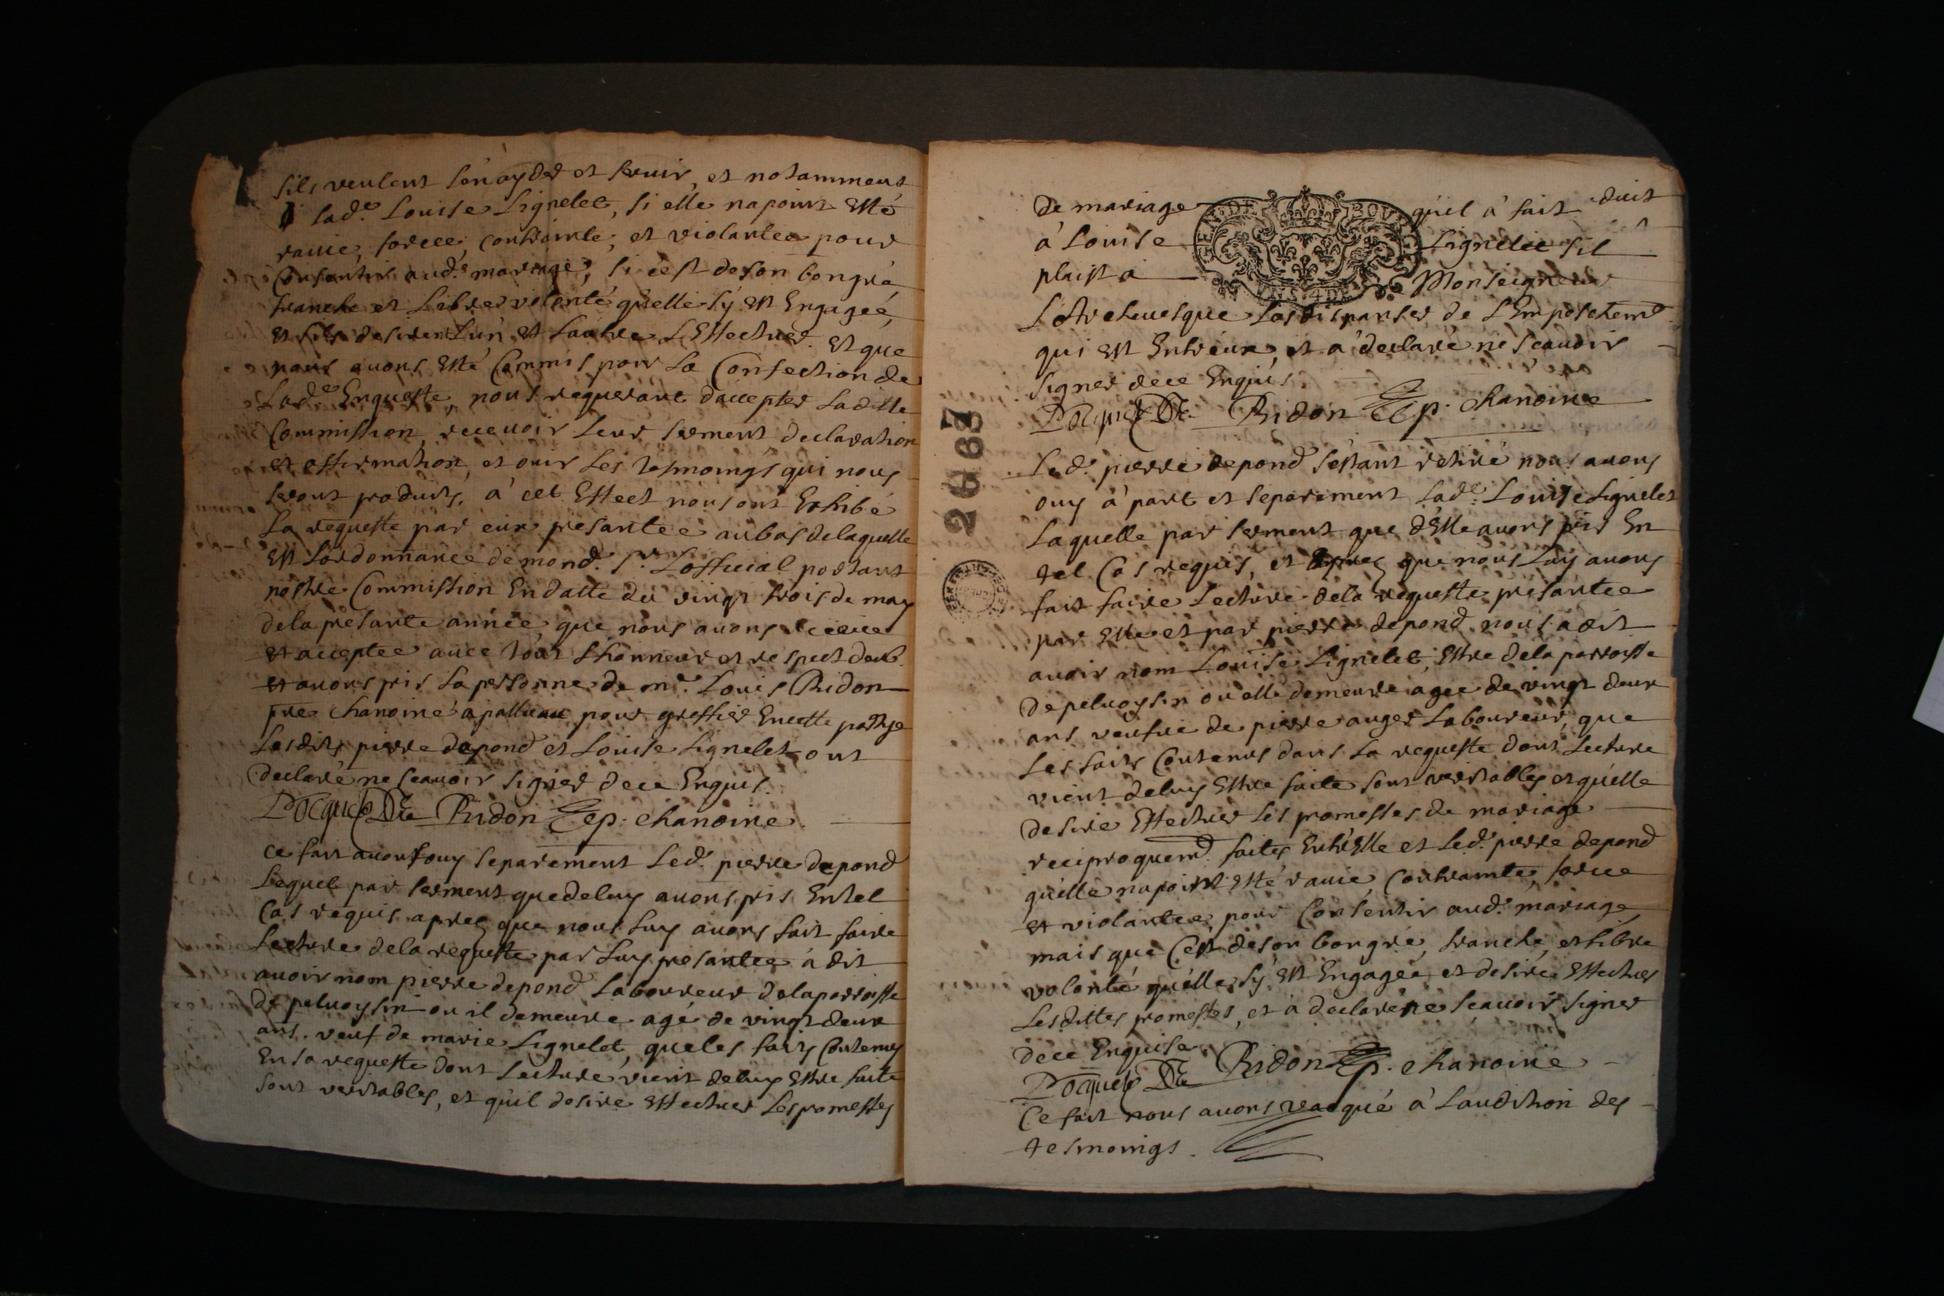 sils veulent sen ayder et servir, et notamment
lad.e Louise Lignelet, si elle na point esté
ravie, forcée, contrainte, et violantee pour
consentir aud. mariage, si cest de son bongré
franche et libre volonté quelle sy est Engagée,
et sils desirent Lun et Lautre L'Effectuer. Et que
nous avons Esté Commis pour La Confection de
Lad.e Enqueste, nous requerant daccepter Laditte
Commission, recevoir Leur serment declaration
et affirmation, et ouir Les tesmoings qui nous
seront produits, à cet Effect nous ont Exhibé
La requeste par eux presantée au bas de laquelle
Est Lordonnance de mond. Sr. Lofficial portant
nostre Commission En datte du vingt trois de may
de la presante année que nous avons receue
et acceptee avec tout Lhonneur et respect deub.
et avons pris La personne de mr. Louis Ridon
pre chanoine a palluau pour greffier En cette partye
Lesdits pierre depond et Louise Lignelet ont
declaré ne scavoir signer de ce Enquis.
Ridon p. chanoine.
ce fait avons ouy separement Led. pierre depond
Lequel par serment que de luy avons pris En tel
Cas requis apres que nous Luy avons fait faire
Lecture de la requeste par Luy presantee à dit
avoir nom pierre depond Laboureur de la parroisse
de peluoysin ou il demeure agé de vingt deux
ans. veuf de marie Lignelet, que les faits Contenus
En sa requeste dont Lecture vient de luy Estre faite
sont veritables, et quil desire effectuer Les promesses
De mariage quil à fait
à Louise Lignelet sil
plaist a Monseigneur
L'Archevesque Les dispanser de L'Empeschemt
qui est Entreux, et a declaré ne scavoir
signer de ce Enquis.
Ridon p. chanoine
Led. pierre depond sestant retiré nous avons
ouy à part et separement Lad.e Louise Lignelet
Laquelle par serment que d'Elle avons pris En
tel Cas requis, et apres que nous Luy avons
fait faire Lecture de la requeste presantee
par Elle et par pierre depond nous a dit
avoir nom Louise Lignelet, Estre de la parroisse
de peluoysin ou elle demeure agee de vingt deux
ans veufve de pierre auger Laboureur, que
Les faits Contenus dans La requeste dont Lecture
vient de luy Estre faite sont veritables et quelle
desire Effectuer Les promesses de mariage
reciproquemt. faites Entr'Elle et Led. pierre depond
quelle na point esté ravie, contrainte, forcee
et violantee, pour Consentir aud. mariage,
mais que Cest de son bongré, franche, et libre
volonté quelle sy est Engagée et desire Effectuer
Lesdittes promesses, et à declaré ne scavoir signer
de ce Enquise.
Ridon p. chanoine
Ce fait nous avons vacqué à Laudition des
tesmoings.
GEN. DE BOVRGES
26683